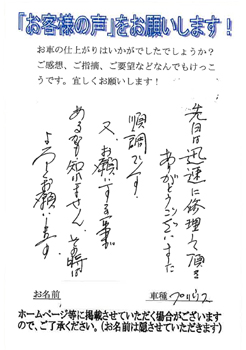 『お客様の声』をお願いします!
お車の仕上がりはいかがでしたでしょうか?
ご感想、ご指摘、ご要望などなんでもけっこ
うです。宜しくお願いします!
先日は迅速に修理して頂き
ありがとうございました
順調です。
又、お願いする事が
あるかも知れません、その時は
よろしくお願いします
お名前
車種 プリウス
ホームページ等に掲載させていただく場合がございます
ので、ご了承ください。(お名前は隠させていただきます)